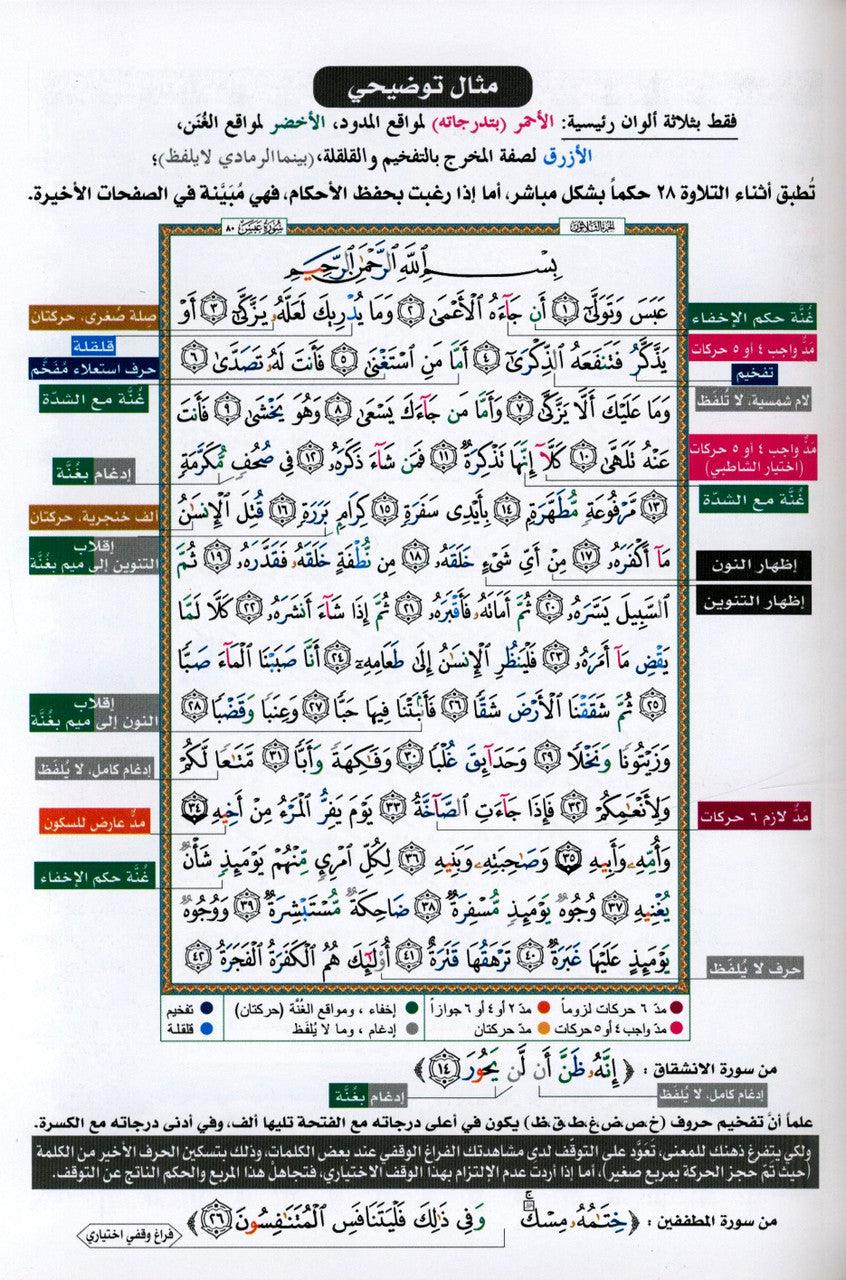 مثال توضيحي
فقط بثلاثة ألوان رئيسية: الأحمر (بتدرجاته) لمواقع المدود، الأخضر لمواقع الغُنَن،
الأزرق لصفة المخرج بالتفخيم والقلقلة، (بينما الرمادي لا يلفظ)؛
تُطبق أثناء التلاوة ٢٨ حكماً بشكل مباشر، أما إذا رغبت بحفظ الأحكام، فهي مُبَيَّنة في الصفحات الأخيرة.
الجزء الثلاثون
سورة عبس ٨٠
بِسْمِ اللَّهِ الرَّحْمَٰنِ الرَّحِيمِ
عَبَسَ وَتَوَلَّىٰٓ ١ أَن جَآءَهُ الْأَعْمَىٰ ٢ وَمَا يُدْرِيكَ لَعَلَّهُۥ يَزَّكَّىٰٓ ٣ أَوْ
يَذَّكَّرُ فَتَنفَعَهُ الذِّكْرَىٰٓ ٤ أَمَّا مَنِ اسْتَغْنَىٰ ٥ فَأَنتَ لَهُۥ تَصَدَّىٰ ٦
وَمَا عَلَيْكَ أَلَّا يَزَّكَّىٰ ٧ وَأَمَّا مَن جَآءَكَ يَسْعَىٰ ٨ وَهُوَ يَخْشَىٰ ٩ فَأَنتَ
عَنْهُ تَلَهَّىٰ ١٠ كَلَّآ إِنَّهَا تَذْكِرَةٌ ١١ فَمَن شَآءَ ذَكَرَهُۥ ١٢ فِي صُحُفٍ مُّكَرَّمَةٍ
١٣ مَّرْفُوعَةٍ مُّطَهَّرَةٍۭ ١٤ بِأَيْدِي سَفَرَةٍ ١٥ كِرَامٍۭ بَرَرَةٍ ١٦ قُتِلَ الْإِنسَٰنُ
مَآ أَكْفَرَهُۥ ١٧ مِنْ أَيِّ شَيْءٍ خَلَقَهُۥ ١٨ مِن نُّطْفَةٍ خَلَقَهُۥ فَقَدَّرَهُۥ ١٩ ثُمَّ
السَّبِيلَ يَسَّرَهُۥ ٢٠ ثُمَّ أَمَاتَهُۥ فَأَقْبَرَهُۥ ٢١ ثُمَّ إِذَا شَآءَ أَنشَرَهُۥ ٢٢ كَلَّا لَمَّا
يَقْضِ مَآ أَمَرَهُۥ ٢٣ فَلْيَنظُرِ الْإِنسَٰنُ إِلَىٰ طَعَامِهِۦٓ ٢٤ أَنَّا صَبَبْنَا الْمَآءَ صَبًّا
٢٥ ثُمَّ شَقَقْنَا الْأَرْضَ شَقًّا ٢٦ فَأَنۢبَتْنَا فِيهَا حَبًّا ٢٧ وَعِنَبًا وَقَضْبًا ٢٨
وَزَيْتُونًا وَنَخْلًا ٢٩ وَحَدَآئِقَ غُلْبًا ٣٠ وَفَٰكِهَةً وَأَبًّا ٣١ مَّتَٰعًا لَّكُمْ
وَلِأَنْعَٰمِكُمْ ٣٢ فَإِذَا جَآءَتِ الصَّآخَّةُ ٣٣ يَوْمَ يَفِرُّ الْمَرْءُ مِنْ أَخِيهِ ٣٤
وَأُمِّهِۦ وَأَبِيهِ ٣٥ وَصَٰحِبَتِهِۦ وَبَنِيهِ ٣٦ لِكُلِّ امْرِئٍ مِّنْهُمْ يَوْمَئِذٍ شَأْنٌ
يُغْنِيهِ ٣٧ وُجُوهٌ يَوْمَئِذٍ مُّسْفِرَةٌ ٣٨ ضَاحِكَةٌ مُّسْتَبْشِرَةٌ ٣٩ وَوُجُوهٌ
يَوْمَئِذٍ عَلَيْهَا غَبَرَةٌ ٤٠ تَرْهَقُهَا قَتَرَةٌ ٤١ أُو۟لَٰٓئِكَ هُمُ الْكَفَرَةُ الْفَجَرَةُ ٤٢
غُنَّة حكم الإخفاء
مَدّ واجب ٤ أو ٥ حركات
تفخيم
لام شمسية، لا تُلفَظ
مَدّ واجب ٤ أو ٥ حركات
(اختيار الشاطبي)
غُنَّة مع الشدّة
إظهار النون
إظهار التنوين
مَدّ لازم ٦ حركات
حرف لا يُلفَظ
صلة صُغرى، حركتان
قلقلة
حرف استعلاء مُفَخَّم
غُنَّة مع الشدّة
إدغام بغُنَّة
ألف خنجرية، حركتان
إقلاب
التنوين إلى ميم بغُنَّة
إقلاب
النون إلى ميم بغُنَّة
إدغام كامل، لا يُلفَظ
مدٌّ عارض للسكون
غُنَّة حكم الإخفاء
مدّ ٦ حركات لزوماً مدّ ٢ أو ٤ أو ٦ جوازاً إخفاء، ومواقع الغُنَّة (حركتان) تفخيم
مدّ واجب ٤ أو ٥ حركات مدّ حركتان إدغام، وما لا يُلفَظ قلقلة
من سورة الانشقاق : ﴿ إِنَّهُۥ ظَنَّ أَن لَّن يَحُورَ ١٤ ﴾
إدغام كامل، لا يُلفَظ
إدغام بغُنَّة
علماً أنَّ تفخيم حروف (خ،ص،ض،غ،ط،ق،ظ) يكون في أعلى درجاته مع الفتحة تليها ألف، وفي أدنى درجاته مع الكسرة.
ولكي يتفرغ ذهنك للمعنى، تَعَوَّد على التوقّف لدى مشاهدتك الفراغ الوقفي عند بعض الكلمات، وذلك بتسكين الحرف الأخير من الكلمة
(حيث تمّ حجز الحركة بمربع صغير)، أما إذا أردت عدم الإلتزام بهذا الوقف الاختياري، فتجاهل هذا المربع والحكم الناتج عن التوقف.
من سورة المطففين : ﴿ خِتَٰمُهُۥ مِسْكٌ ۚ وَفِي ذَٰلِكَ فَلْيَتَنَافَسِ الْمُتَنَٰفِسُونَ ٢٦ ﴾
فراغ وقفي اختياري